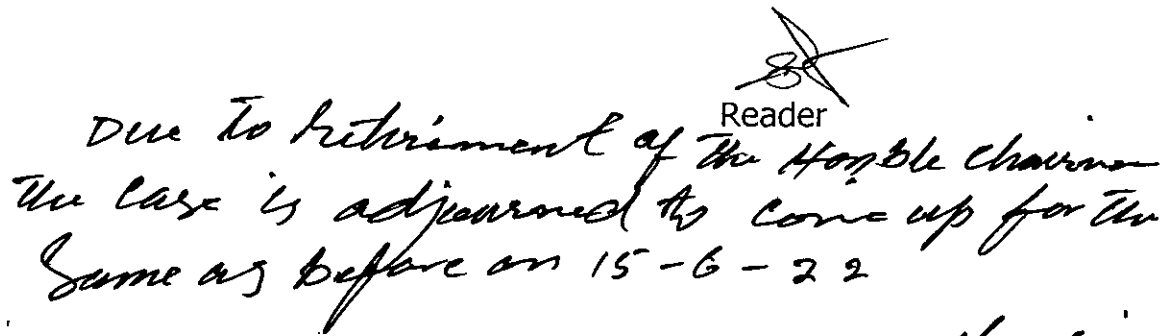 Reader
Due to Retirement of the Hon,ble Chairman
the case is adjourned to come up for the
Same as before on 15-6-22